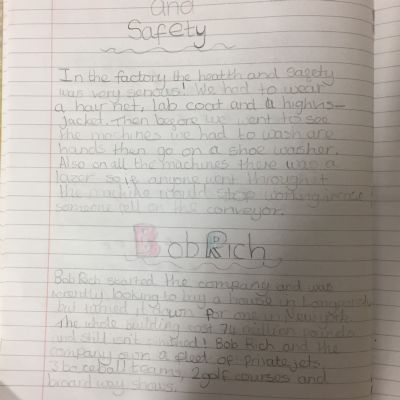 and
Safety
In the factory the health and sagety
was very serious! We had to wear
a hair net, lab coat and a highvis-
jacket. Then before we went to see
the machines we had to wash are
hands then go on a shoe washer.
Also on all the machines there was a
lazer so if anyone went through it
the machine would stop working incase
someone fell on the conveyor.
Bob Rich
Bob Rich started the company and was
recently looking to buy a house in
but turned it down for one in New york
The whole building cost 74 million pounds
and still isn't finished! Bob Rich and the
company own a fleet of private jets,
3 baceball teams, 2 golf courses and
broard way shows.